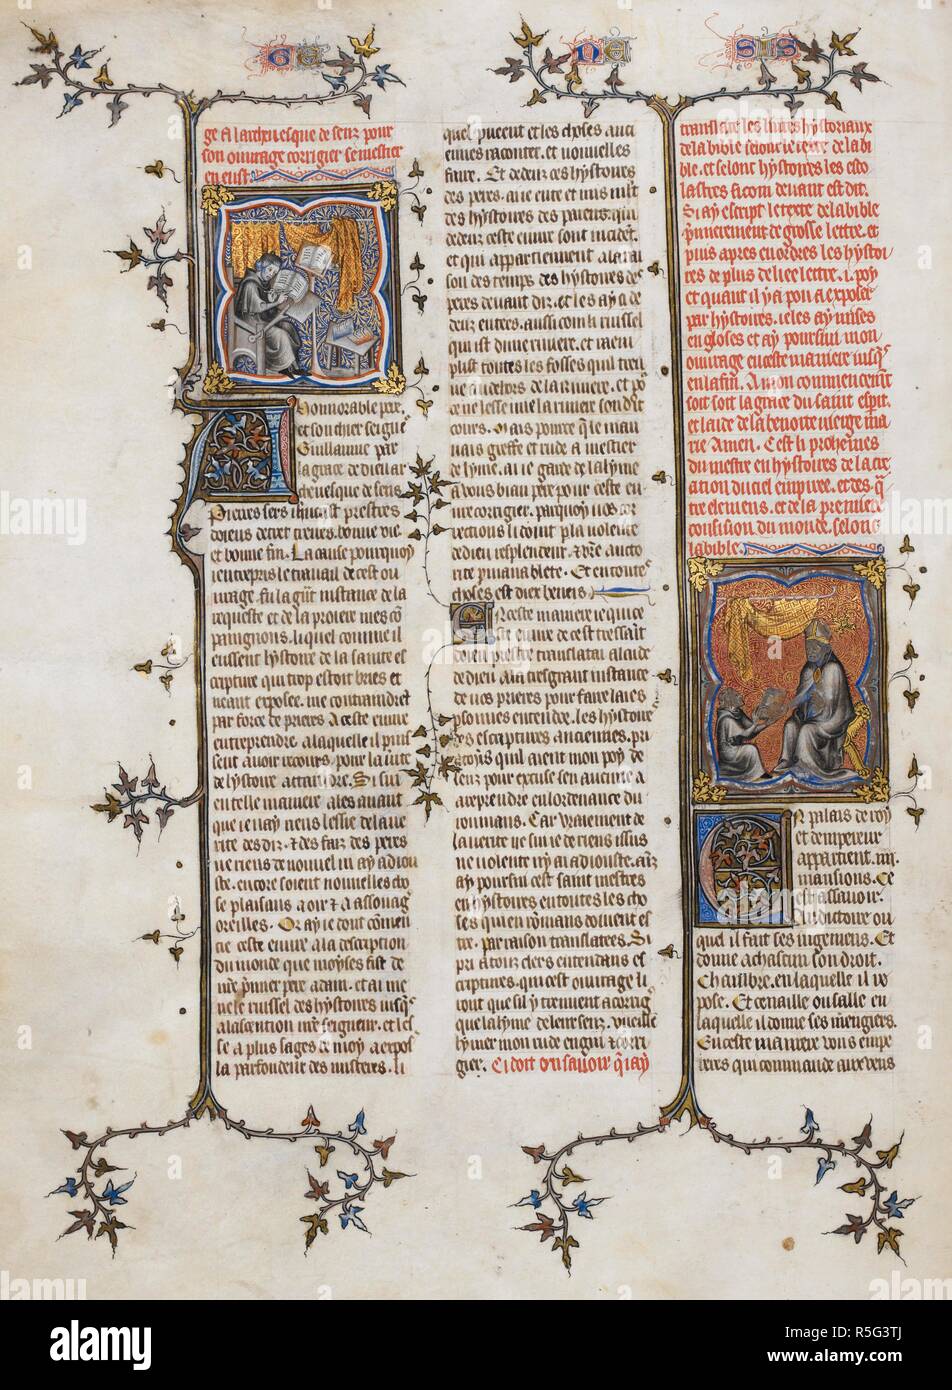 GE NE SIS
ge a larcevesque de senz pour
son ouvrage corrigier se mestier
en eust.
Honnorable pere
et son chier seigne
Guillaume par
la grace de dieu ar
cevesque de sens
Pierres sers ihucrist prestres
doiens de tret treues. bonne vie.
et bonne fin. La cause pourquoy
ientrepris le travail de cest ou
vrage. fu la gnt instance de la
requeste et de la proiere mes co
paignons. liquel comme il
eussent hystoire de la sainte es
cripture qui trop estoit bries et
neant exposee. me contraindret
par force de prieres a ceste euvre
entreprendre. a laquelle il puis
sent avoir recours. pour la vite
de lystoire attaindre. Si sui
en telle maniere ales avant
que ie nay riens lessie de la ve
rite des diz. et des faiz des peres
ne riens de nouvel ni ay adiou
ste. encore soient nouvelles cho
se plaisans a oir et a assouag
oreilles. Or ay ie dont comen
cie ceste euvre a la description
du monde que moyses fist de
nde pmier pere adam. et ai me
ne le ruissel des hystoires iusqs
a lascention nre seigneur. et les
se a plus sages de moy a expos
la parfondeur des misteres. li
quel pueent et les choses anci
ennes raconter. et nouvelles
faire. Et de deux ces hystoires
des peres. ai ie ente et mis nult
des hystoires des paiens. qui
dedenz ceste euvre sont incidet.
et qui appartiennent a la rai
son des temps des hystoires des
peres devant diz. et les ay ci de
denz entees. aussi com li ruissel
qui ist dune riviere. et raem
plist toutes les fosses quil treu
ve au dehors de la riviere. et po
ce ne lesse mie la riviere son drt
cours. Mais pource que le mau
vais greffe et rude a mestier
de lyme. ai ie garde de la lyme
a vous biau pere pour ceste eu
vre corrigier. par quoy nos cor
rections li doint par la volente
de dieu resplendeur. Vre aucto
rite pmanablete. Et en toutes
choses est diex beneis
En ceste maniere ie qui ce
de dieu. a la tres grant instance
de nos prieres pour faire laies
psonnes entendre. les hystoires
des escriptures anciennes. pri
senz pour excuse sen aucune a
a reprendre en lordenance du
roumans. Car vraiement de
la verite ne sui ie de riens issus
ne volente ny ai adiouste. ainz
ay poursui cest saint mestres
en hystoires en toutes les cho
ses qui en romans doivent es
tre. par raison translatees. Si
pri a touz clers entendans es
criptures. qui cest ouvrage li
ront que sil y treuvent a corrig
que la lyme de leur senz. vueille
lymer mon rude engin et corri
gier. Ci doit on savoir q iay
translate les livres hystoriaux
de la bible selonc le texte de la bi
ble. et selonc hystoires les esco
lastres si com devant est dit.
Si ay escript le texte de la bible
pmierement de grosse lettre. et
puis apres en ordre les hystoi
res de plus deliee lettre. i. poy
et quant il y a pou a exposer
par hystoires. ie les ay mises
en gloses et ay poursui mon
ouvrage en ceste maniere iusqs
en la fin. A mon commencemt
soit soit la grace du saint espit.
et laide de la benoite vierge ma
rie Amen. Cest li prohemes
du mestre en hystoires de la cre
ation du ciel empiree. et des q
tre elemens. et de la premiere
confusion du monde. selonc
la bible.
En palais de roy
et dempereur
appartient. iiii.
mansions. Ce
est assavoir.
Auditoire ou
quel il fait ses iugemens. Et
donne a chascun son droit.
Chambre. en laquelle il re
pose. Et cenaille ou salle en
laquelle il donne ses mengiers.
En ceste maniere vous empe
reres qui commande aux vens
alamy
alamy
Image ID: R5G3TJ
www.alamy.com